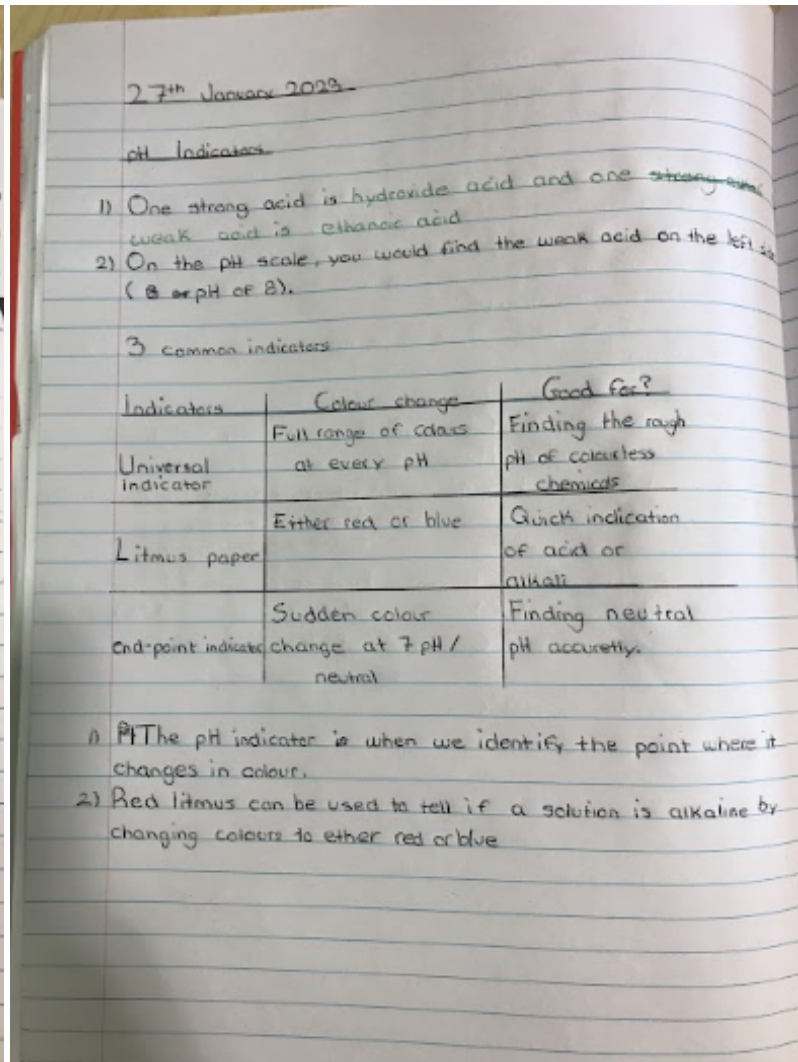 27th January 2023
pH Indicators
1) One strong acid is hydroxide acid and one strong
weak acid is ethanoic acid
2) On the pH scale, you would find the weak acid on the left side
( 8 or pH of 8).
3 common indicators
Indicators Colour change Good for?
Universal indicator Full range of colours at every pH Finding the rough pH of colourless chemicals
Litmus paper Either red or blue Quick indication of acid or alkali
end-point indicator Sudden colour change at 7 pH / neutral Finding neutral pH accuretly.
1) The pH indicator is when we identify the point where it
changes in colour.
2) Red litmus can be used to tell if a solution is alkaline by
changing colours to ether red or blue